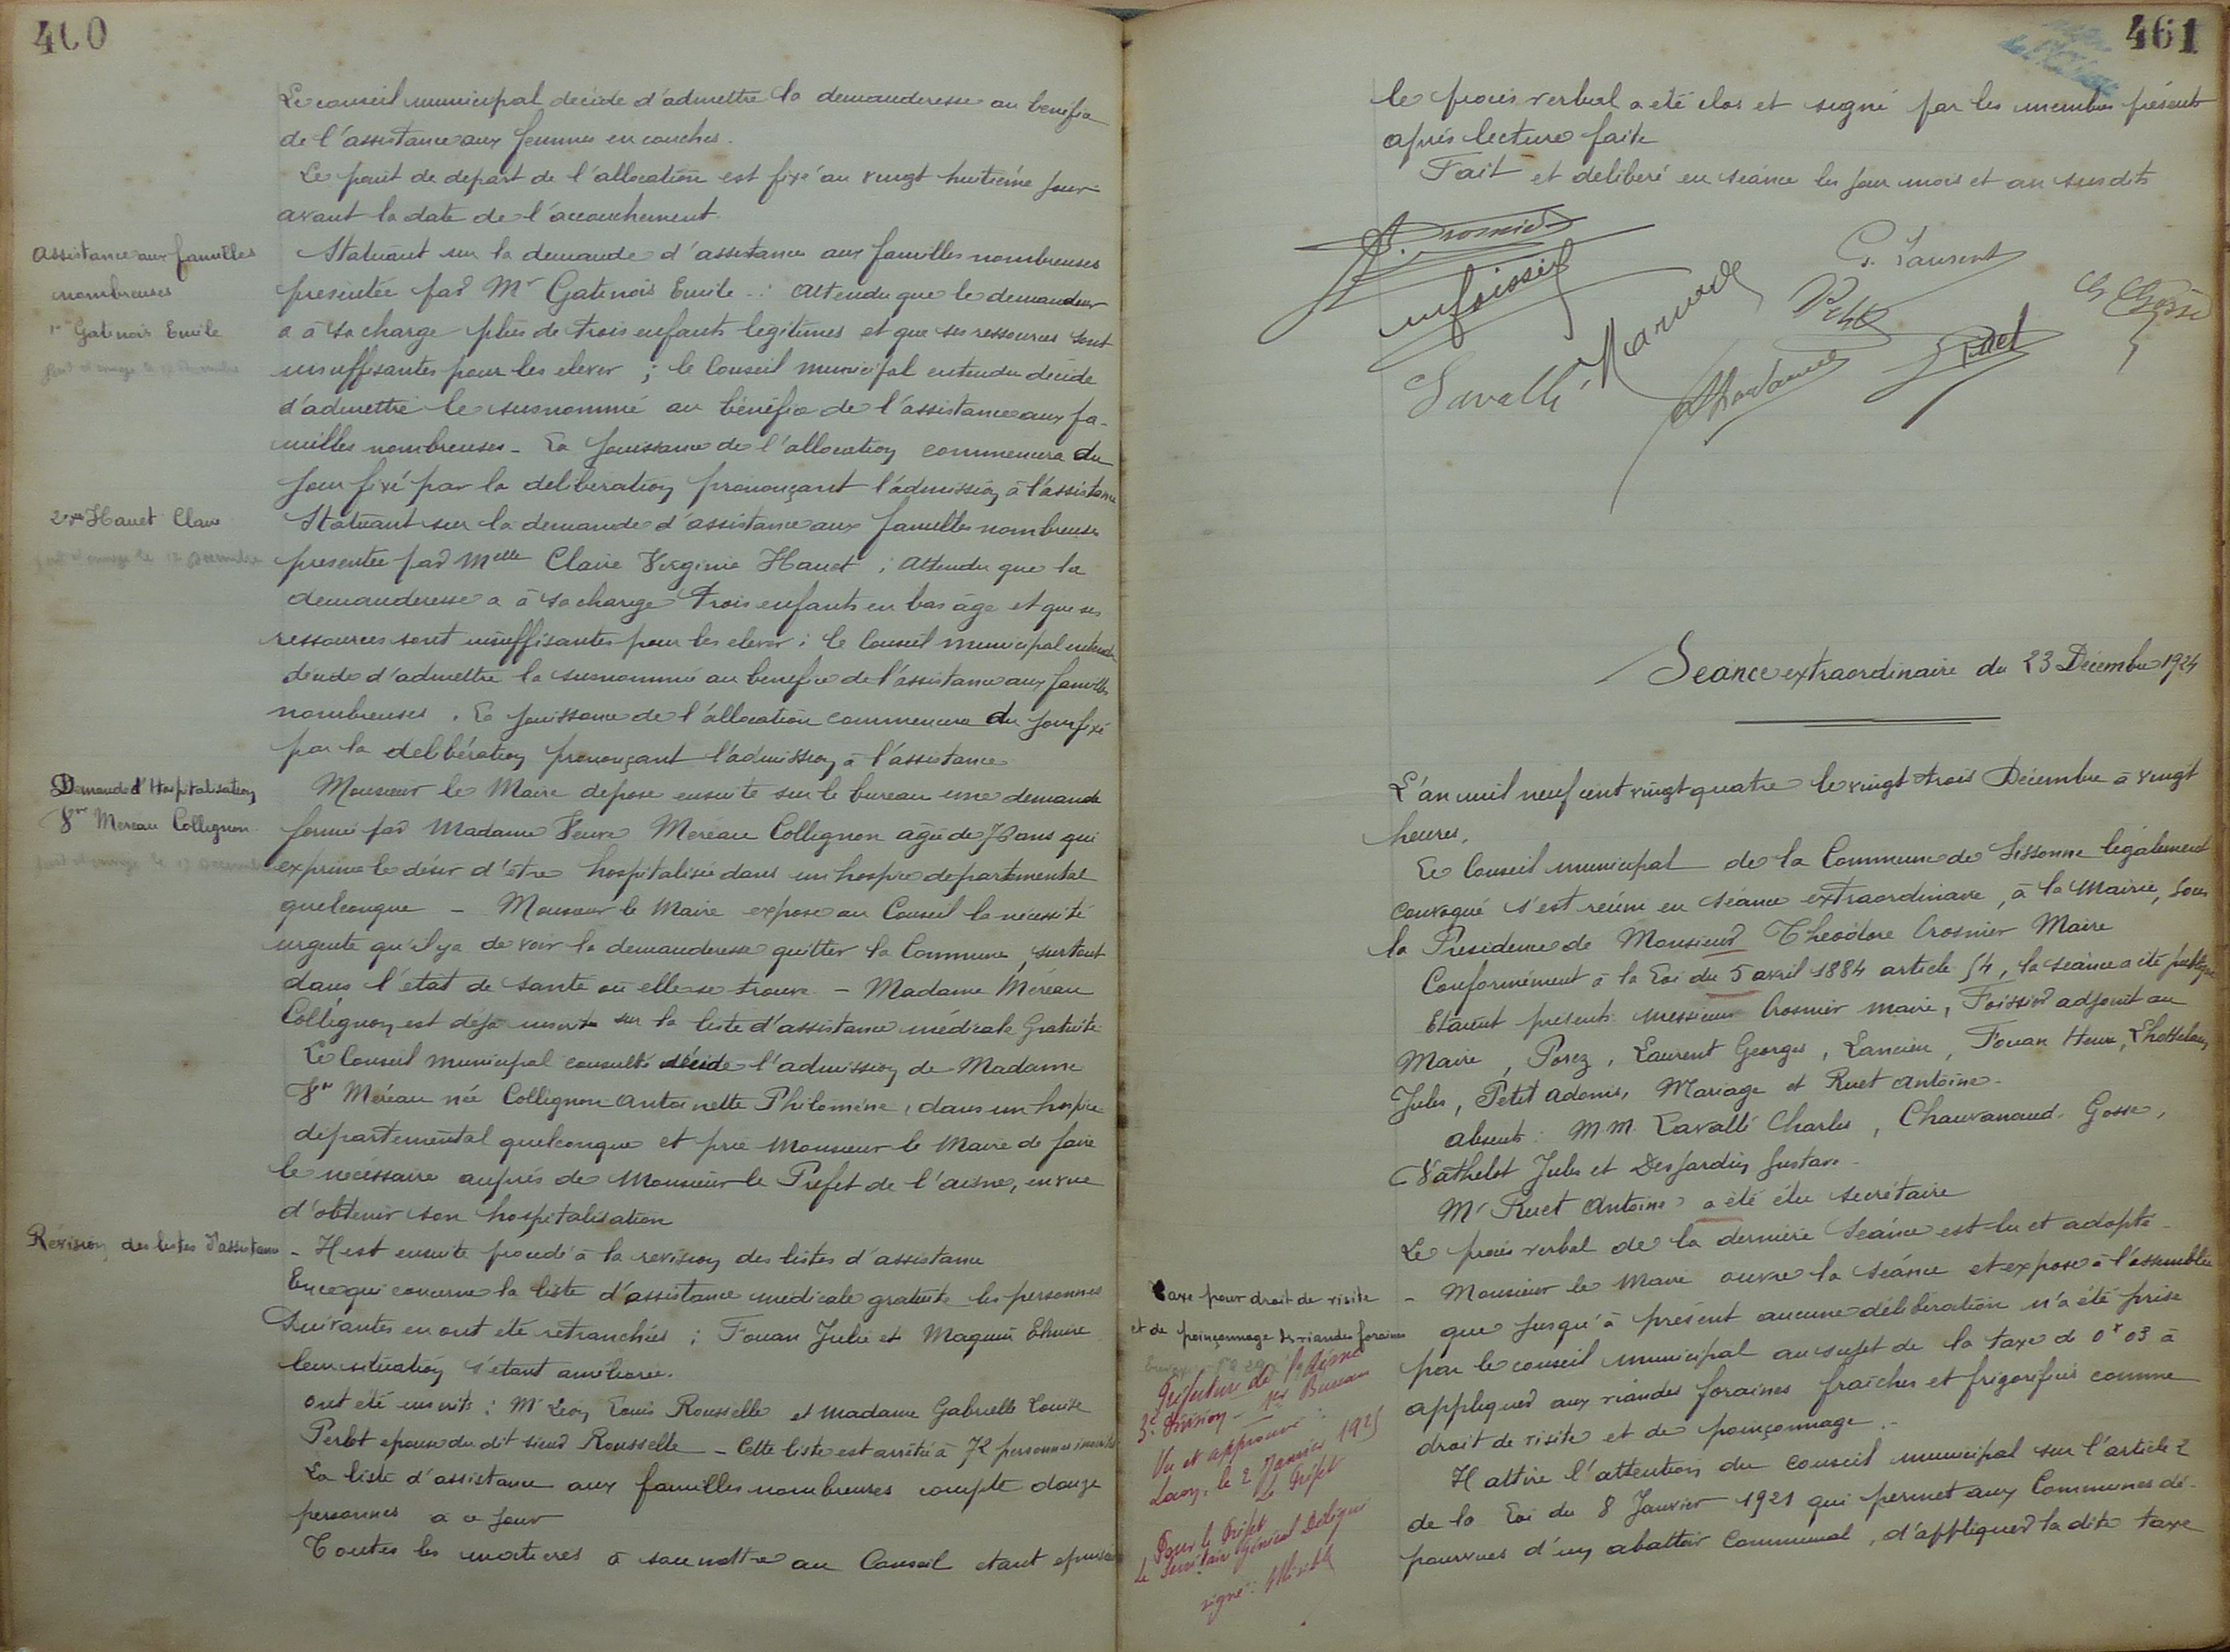 460
Le conseil municipal décide d'admettre la demanderesse au bénéfice
de l'assistance aux femmes en couches.
Le point de départ de l'allocation est fixé au vingt huitième jour
avant la date de l'accouchement.
Assistance aux familles
nombreuses
1° Gatinois Emile
Statuant sur la demande d'assistance aux familles nombreuses
présentée par Mr Gatinois Emile : Attendu que le demandeur
a à sa charge plus de trois enfants légitimes et que ses ressources sont
insuffisantes pour les élever ; le Conseil municipal entendu décide
d'admettre le susnommé au bénéfice de l'assistance aux fa-
milles nombreuses - La jouissance de l'allocation commencera du
jour fixé par la délibération prononçant l'admission à l'assistance
2° Hanet Claire
fait et envoyé le 12 Décembre
Statuant sur la demande d'assistance aux familles nombreuses
présentée par Melle Claire Virginie Hanet ; Attendu que la
demanderesse a à sa charge trois enfants en bas âge et que ses
ressources sont insuffisantes pour les élever : le Conseil municipal entendu
décide d'admettre la susnommée au bénéfice de l'assistance aux familles
nombreuses . La jouissance de l'allocation commencera du jour fixé
par la délibération prononçant l'admission à l'assistance
Demande d'Hospitalisation
Vve Mereau Collignon
Monsieur le Maire dépose ensuite sur le bureau une demande
formée par Madame Veuve Meréau Collignon agée de ans qui
exprime le désir d'être hospitalisée dans un hospice départemental
quelconque - Monsieur le Maire expose au Conseil la nécessité
urgente qu'il y a de voir la demanderesse quitter la Commune, surtout
dans l'état de santé où elle se trouve - Madame Méreau
Collignon est déja inscrite sur la liste d'assistance médicale Gratuite.
Le Conseil municipal consulté décide l'admission de Madame
Vve Méreau née Collignon Antoinette Philomène, dans un hospice
départemental quelconque et prie Monsieur le Maire de faire
le nécessaire auprès de Monsieur le Préfet de l'aisne, en vue
d'obtenir son hospitalisation
Révision des listes d'assistance
- Il est ensuite procédé à la revision des listes d'assistance
En ce qui concerne la liste d'assistance médicale gratuite les personnes
Suivantes en ont été retranchées ; Fouan Julie et Maquin
leur situation s'étant améliorée.
Ont été inscrits : Mr Léon Louis Rousselle et madame Gabrielle Louise
Perlot épouse du dit sieur Rousselle - Cette liste est arrêtée à 72 personnes inscrites
La liste d'assistance aux familles nombreuses compte douze
personnes à ce jour
Toutes les matières à soumettre au Conseil étant épuisées
461
le procès verbal a été clos et signé par les membres présents
après lecture faite
Fait et délibéré en séance les jour mois et an susdits
Crosnier
Foissier
G. Laurent
Petit
Lavallé
Mariage
Ruet
Séance extraordinaire du 23 Décembre 1924
L'an mil neuf cent vingt quatre le vingt trois Décembre à vingt
heures.
Le Conseil municipal de la Commune de Sissonne légalement
convoqué s'est réuni en séance extraordinaire, à la Mairie, sous
la Présidence de Monsieur Théodore Crosnier Maire
Conformément à la Loi du 5 avril 1884 article 54, la séance a été publique
Etaient présents messieurs Crosnier maire, Foissier adjoint au
Maire, Porez, Laurent Georges, Lancien, Fouan Henri, Lhotelain
Jules, Petit Adonis, Mariage et Ruet Antoine -
Absents : M.M. Lavallé Charles, Chauvanaud. Gosse,
Vathelot Jules et Desjardin Gustave -
Mr Ruet Antoine a été élu secrétaire
Le procès verbal de la dernière Séance est lu et adopté -
Taxe pour droit de visite
et de poinçonnage des viandes foraines
Préfecture de l'Aisne
3e Division - 1er Bureau
Vu et approuvé :
Laon, le 2 Janvier 1925
Le Préfet
Pour le Préfet
Le Secrétaire Général Délégué
signé :
- Monsieur le Maire ouvre la séance et expose à l'assemblée
que jusqu'à présent aucune délibération n'a été prise
par le conseil municipal au sujet de la taxe de 0f03 à
appliquer aux viandes foraines fraîches et frigorifiées comme
droit de visite et de poinçonnage . -
Il attire l'attention du conseil municipal sur l'article 2
de la Loi du 8 Janvier 1921 qui permet aux Communes dé-
pourvues d'un abattoir Communal, d'appliquer la dite taxe